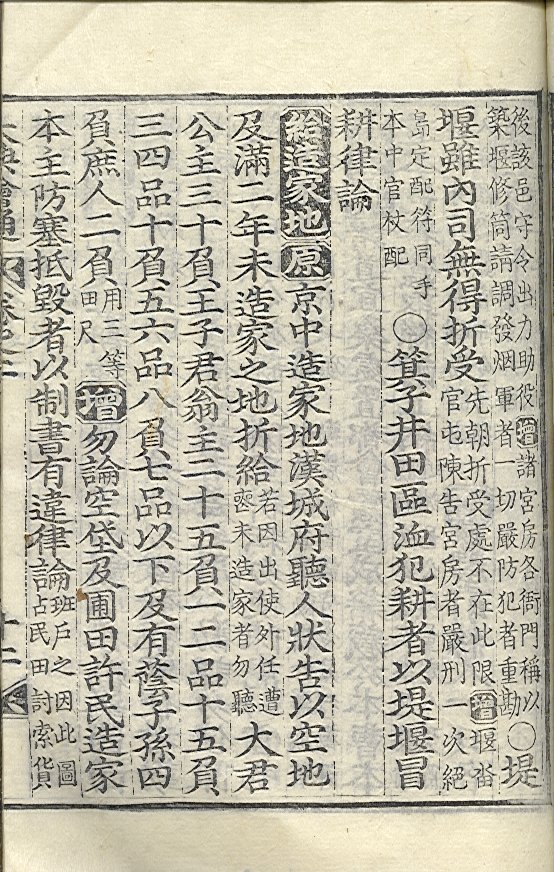 後該邑守令出力助役增諸宮房各衙門稱以
築堰修筒請調發烟軍者一切嚴防犯者重勘
○堤
堰雖內司無得折受
先朝折受處不在此限增堰畓
官屯陳告宮房者嚴刑一次絕
島定配符同手
本中官杖配
○箕子井田區洫犯耕者以堤堰冒
耕律論
給造家地原京中造家地漢城府聽人狀告以空地
及滿二年未造家之地折給
若因出使外任遭
喪未造家者勿聽
大君
公主三十負王子君翁主二十五負一二品十五負
三四品十負五六品八負七品以下及有蔭子孫四
負庶人二負
用三等
田尺
增勿論空垈及圃田許民造家
本主防塞抵毀者以制書有違律論
班戶之因此圖
占民田討索貨
大典會通 卷之二 十二